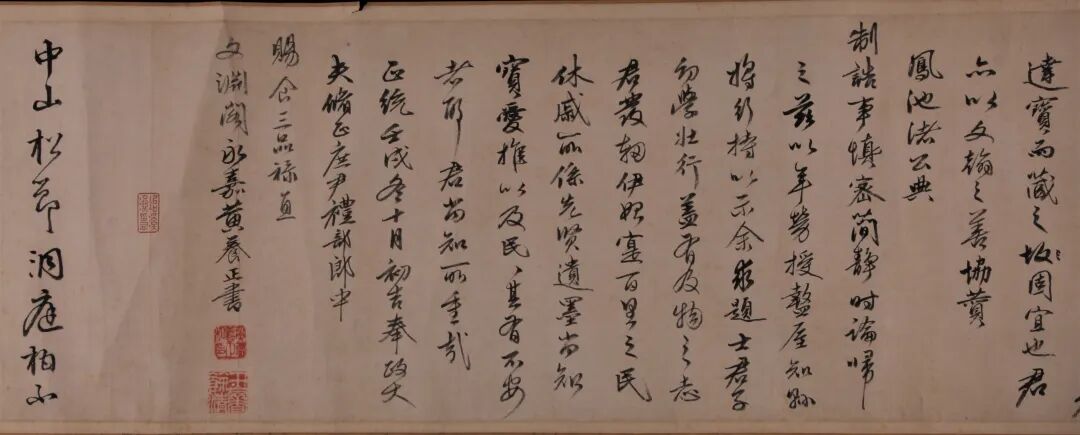 達寶而藏之故固宜也君
亦以文翰之善協贊
鳳池諸公典
制誥事慎密簡靜時論歸
之茲以年勞授盩厔知縣
將行持以示余求題士君子
幼學壯行蓋有及物之志
君發軔伊始寔百里之民
休戚所係先賢遺墨尚知
寶愛推以及民民其有不安
者耶君尚知所重哉
正統壬戌冬十月初吉奉政大
夫脩正庶尹禮部郎中
賜食三品祿直
文淵閣永嘉黃養正書
中山松節洞庭柏不